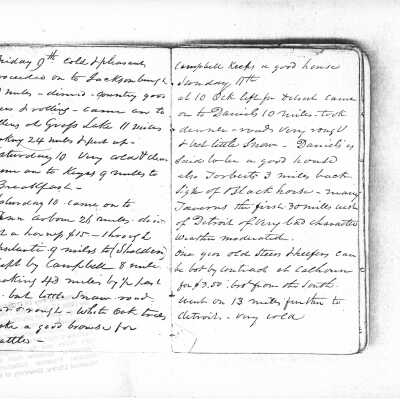 riday 9th cold & pleasant
roceeded on to Jacksonburgh
miles - dinner - country good
& rolling - came on to
Grass Lake 11 miles
24 miles & put up -
aturday 10 Very cold & clear
me on to Keyes 9 miles to
Breakfast -
aturday 10 came on to
Ann arbour 26 miles - din
a horse $15 - through
9 miles to (Sheldens)
Kept by Campbell 8 miles
making 43 miles by 1/2 past
- but little Snow road
& rough - White Oak trees
ake a good browse for
attle -
Campbell Keeps a good house
Sunday 11th
at 10 Ock left for Detroit came
on to Daniels 10 miles - took
dinner - roads very rough
& but little Snow - Daniels is
Said to be a good house
also Torberts 3 miles back
Sign of Black horse - many
Taverns the first 30 miles west
of Detroit of Very bad character
Weather moderated.
One year old Steers & heifers can
be bot by contract at Calhoun
for $3.00. bot from the South.
Went on 13 miles further to
Detroit. - very cold